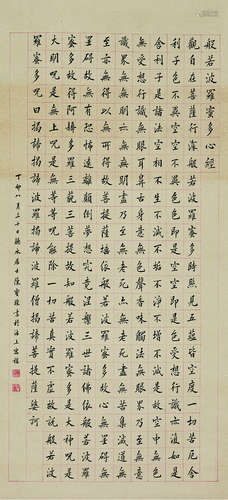 般若波羅蜜多心經
觀自在菩薩行深般若波羅蜜多時照見五蘊皆空度一切苦厄舍
利子色不異空空不異色色即是空空即是色受想行識亦復如是
舍利子是諸法空相不生不滅不垢不淨不增不減是故空中無色
無受想行識無眼耳鼻舌身意無色聲香味觸法無眼界乃至無意
識界無無明亦無無明盡乃至無老死亦無老死盡無苦集滅道無
智亦無得以無所得故菩提薩埵依般若波羅蜜多故心無罣礙無
罣礙故無有恐怖遠離顛倒夢想究竟涅槃三世諸佛依般若波羅
蜜多故得阿耨多羅三藐三菩提故知般若波羅蜜多是大神咒是
大明咒是無上咒是無等等咒能除一切苦真實不虛故說般若波
羅蜜多咒曰揭諦揭諦波羅揭諦波羅僧揭諦菩提薩婆訶
丁卯八月三十日